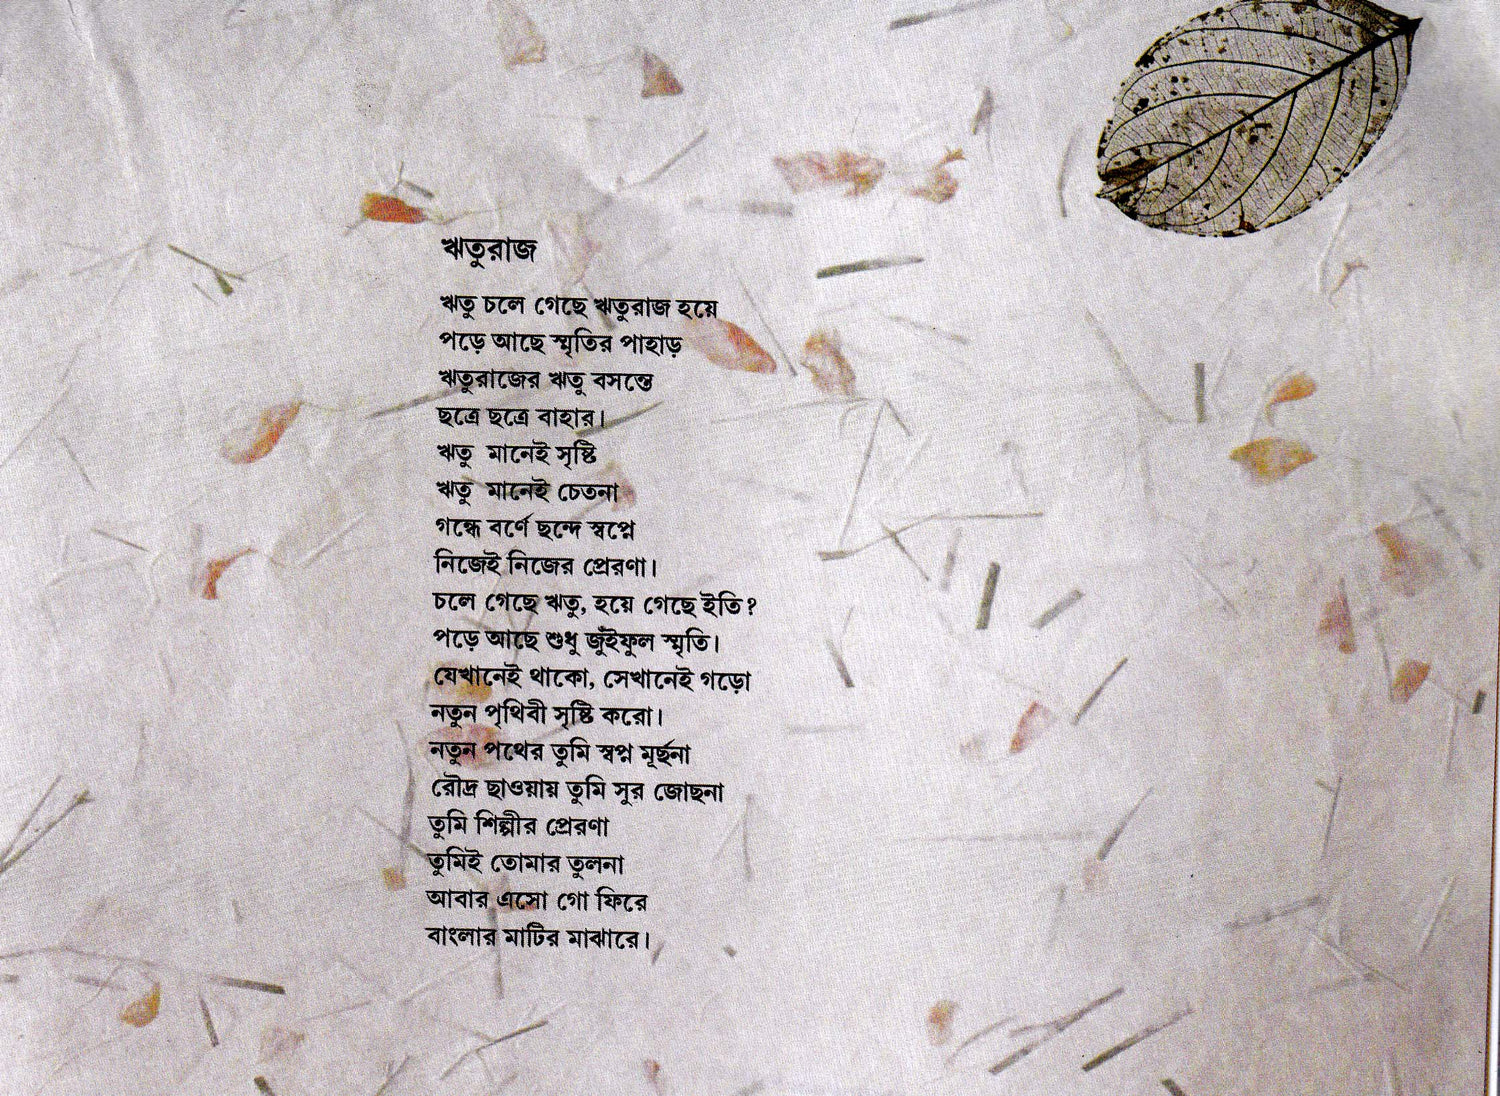 ঋতুরাজ
ঋতু চলে গেছে ঋতুরাজ হয়ে
পড়ে আছে স্মৃতির পাহাড়
ঋতুরাজের ঋতু বসন্তে
ছত্রে ছত্রে বাহার।
ঋতু মানেই সৃষ্টি
ঋতু মানেই চেতনা
গন্ধে বর্ণে ছন্দে স্বপ্নে
নিজেই নিজের প্রেরণা।
চলে গেছে ঋতু, হয়ে গেছে ইতি?
পড়ে আছে শুধু জুঁইফুল স্মৃতি।
যেখানেই থাকো, সেখানেই গড়ো
নতুন পৃথিবী সৃষ্টি করো।
নতুন পথের তুমি স্বপ্ন মূর্ছনা
রৌদ্র ছাওয়ায় তুমি সুর জোছনা
তুমি শিল্পীর প্রেরণা
তুমিই তোমার তুলনা
আবার এসো গো ফিরে
বাংলার মাটির মাঝারে।